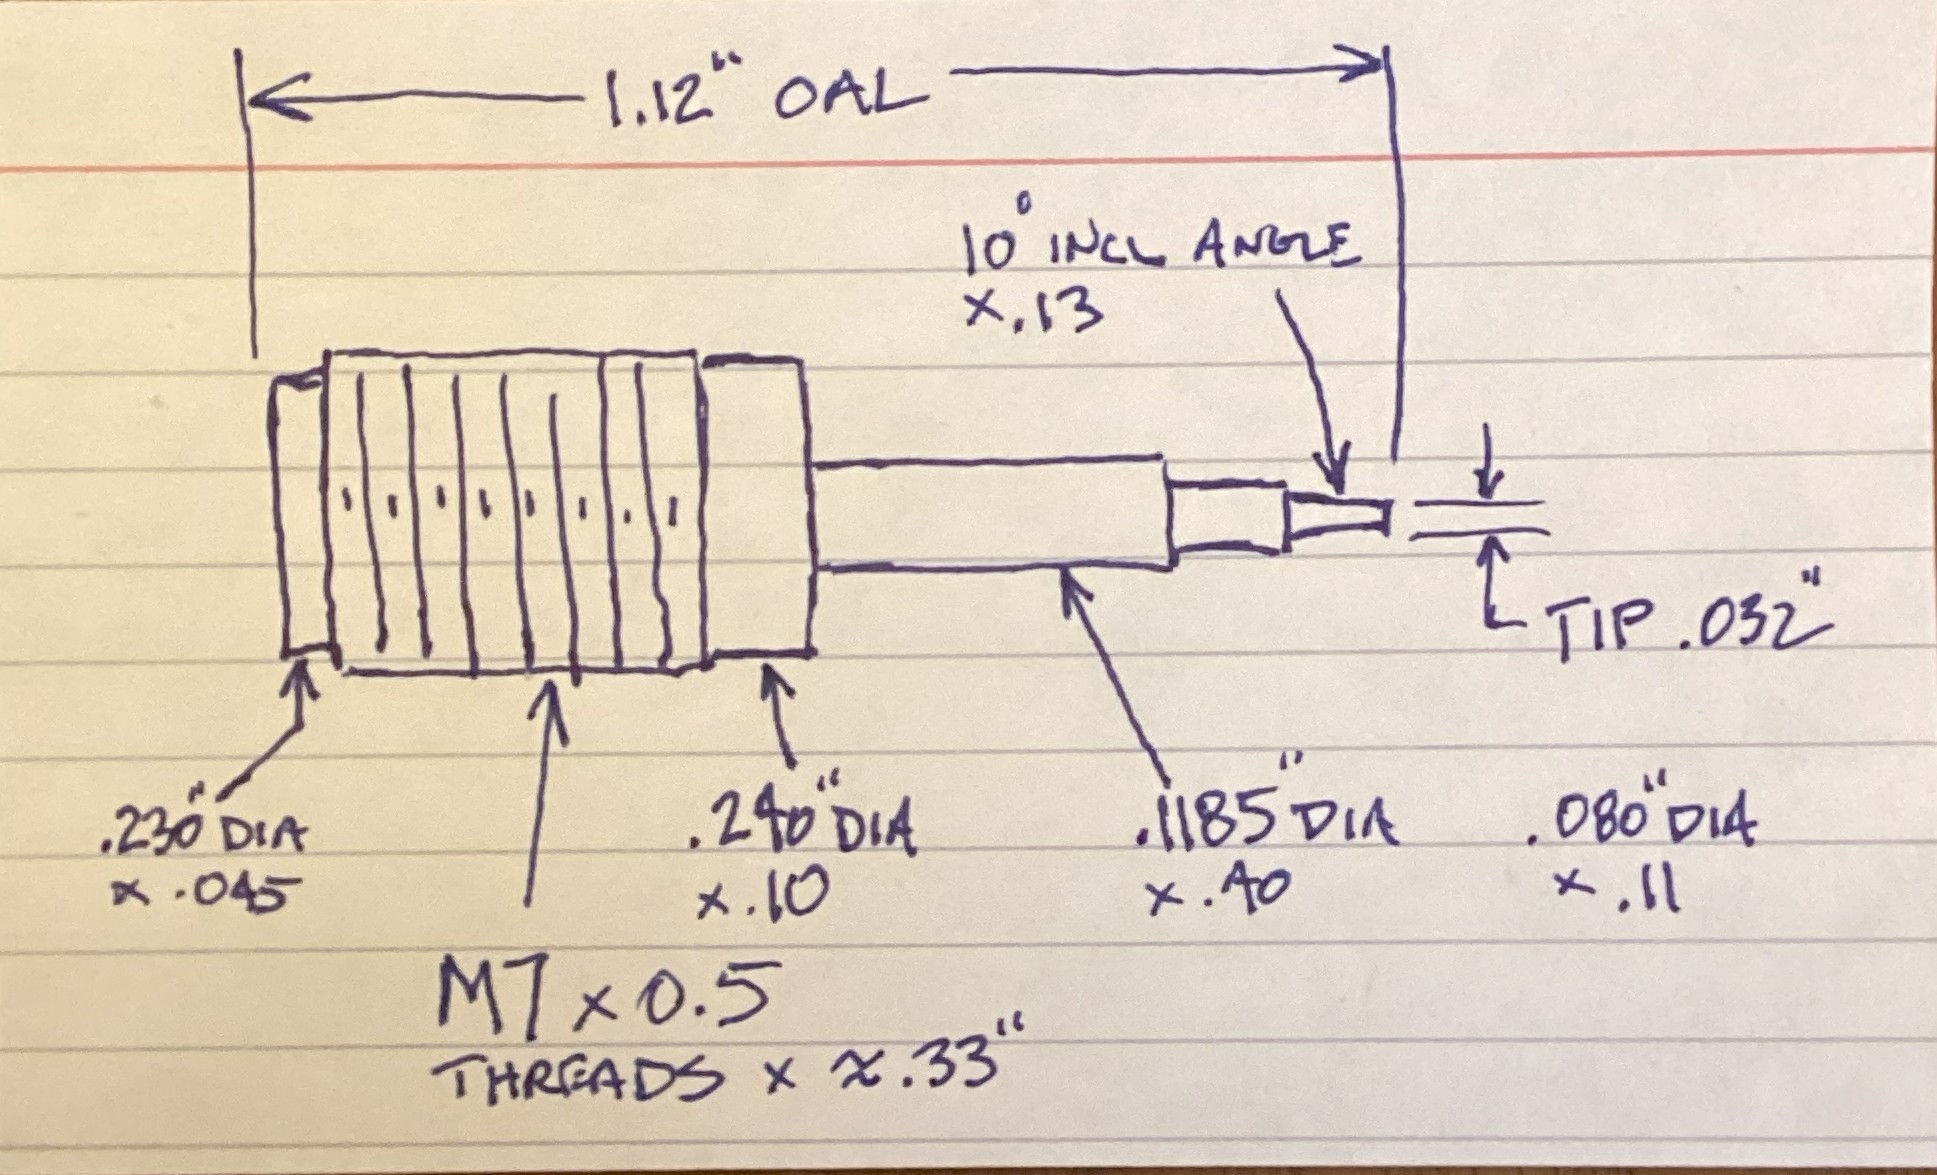 1.12" OAL
10° INCL ANGLE
x .13
TIP .032"
.230" DIA
x .045
.240" DIA
x .10
.1185" DIA
x .40
.080" DIA
x .11
M7 x 0.5
THREADS x ≈.33"